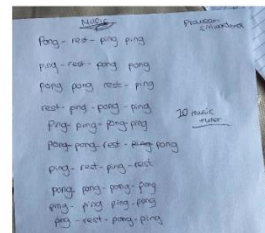 Music
Pong - rest - ping ping
ping - rest - pong pong
pong pong rest - ping
rest - ping - pong - ping
Ping - ping - pong - pong
Pong - pong - rest - pong
ping - rest - ping - rest
pong - pong - pong - pong
ping - ping ping - pong
ping - rest - pong - ping
music